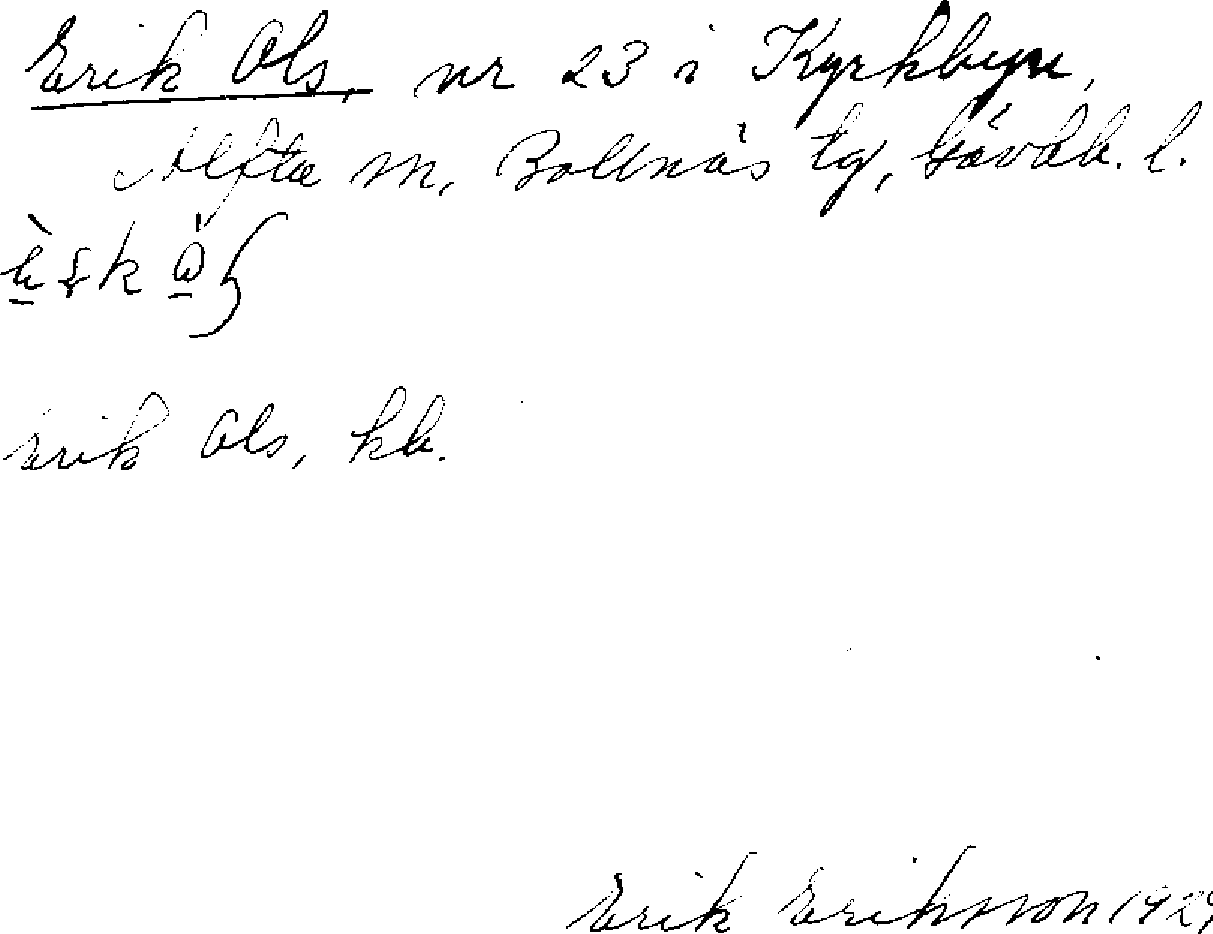 Erik Ols, nr 23 i Kyrkbyn,
Alfta sn, Bollnäs tg, Gävleb. l.
Erik Ols, kb.
Erik Eriksson 1929